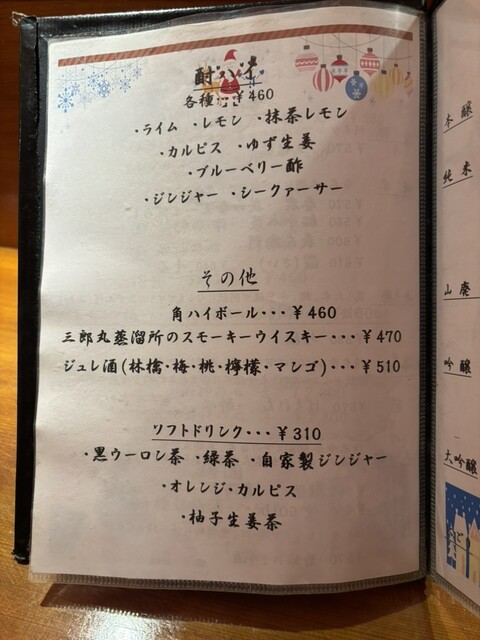 酎ハイ
各種 ¥460
・ライム ・レモン ・抹茶レモン
・カルピス ・ゆず生姜
・ブルーベリー酢
・ジンジャー ・シークァーサー
その他
角ハイボール・・・¥460
三郎丸蒸溜所のスモーキーウイスキー・・・¥470
ジュレ酒(林檎・梅・桃・檸檬・マンゴ)・・・¥510
ソフトドリンク・・・¥310
・黒ウーロン茶 ・緑茶 ・自家製ジンジャー
・オレンジ・カルピス
・柚子生姜茶
本醸
純米
山廃
吟醸
大吟醸